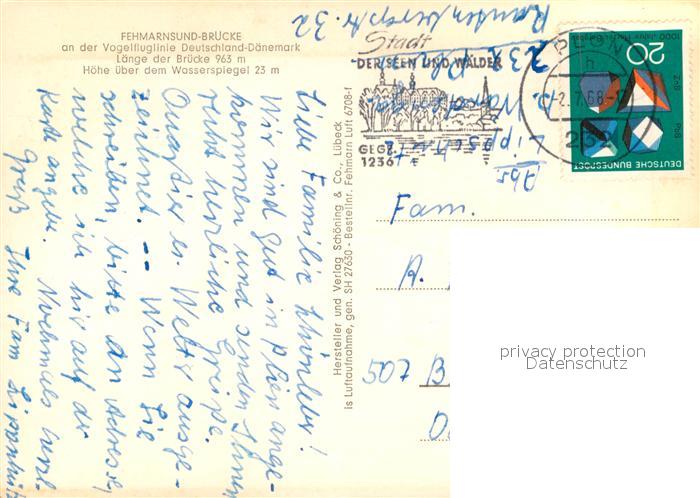 FEHMARNSUND-BRÜCKE
an der Vogelfluglinie Deutschland-Dänemark
Länge der Brücke 963 m
Höhe über dem Wasserspiegel 23 m
Liebe Familie
Wir sind gut in Plön ange-
kommen und senden Ihnen
herzliche Grüße.
Quartier u. Wetter ausge-
zeichnet. -- Wenn Sie
schreiben, bitte an Adresse,
welche ich hier auf der
Karte angebe. Nochmals herzl.
Gruß Ihre Fam. Lippschütz
Hersteller und Verlag Schöning & Co., Lübeck
is Luftaufnahme, gen. SH 27630 - Bestellnr. Fehmarn Luft 6708-f
Stadt
DER SEEN UND WÄLDER
GEGR.
1236
PLÖN
h
-2.7.68-1
232
1000 Jahre
20
ZnS
PbS
DEUTSCHE BUNDESPOST
Abs.
Lippschütz
232 Plön
32
Fam.
A.
507 B
privacy protection
Datenschutz